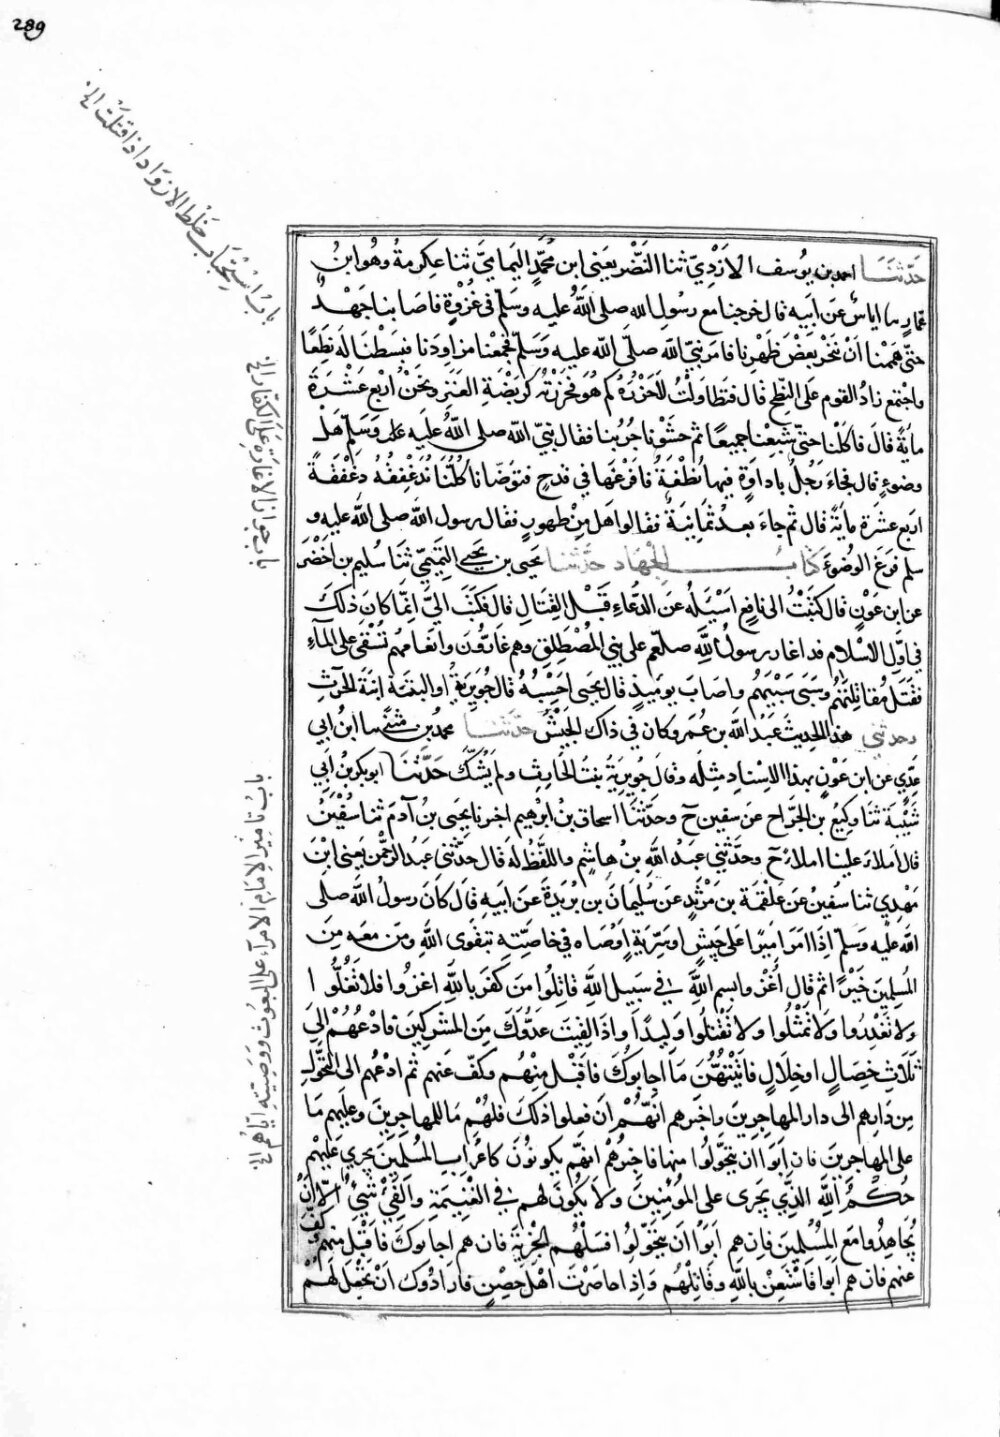 289
باب استحباب خلط الازواد اذا قتلت الخ
باب جواز الاغارة على الكفار الخ
باب تامير الامام الامرآء على البعوث ووصيته اياهم الخ
حدثنا احمد بن يوسف الازدي ثنا النضر يعنى ابن محمد اليمامي ثنا عكرمة وهو ابن
عمار ثنا اياس عن ابيه قال خرجنا مع رسول الله صلى الله عليه وسلم فى غزوة فاصابنا جهد
حتى هممنا ان ننحر بعض ظهرنا فامر نبي الله صلى الله عليه وسلم فجمعنا مزاودنا فبسطنا له نطعا
واجتمع زاد القوم على النطع قال فتطاولت لاحزره كم هو فحزرته كربضة العنز ونحن اربع عشرة
مائة قال فاكلنا حتى شبعنا جميعا ثم حشونا جربنا فقال نبي الله صلى الله عليه وسلم هل
وضوء قال فجاء رجل باداوة فيها نطفة فافرغها في قدح فتوضانا كلنا ندغفقه دغفقة
اربع عشرة مائة قال ثم جاء بعد ثمانية فقالوا هل من طهور فقال رسول الله صلى الله عليه و
سلم فرغ الوضوء كتاب الجهاد حدثنا يحيى بن يحيى التميمي ثنا سليم بن اخضر
عن ابن عون قال كتبت الى نافع اسئله عن الدعاء قبل القتال قال فكتب الي انما كان ذلك
في اول الاسلام قد اغار رسول الله صلعم على بني المصطلق وهم غارون وانعامهم تسقى على المآء
فقتل مقاتلتهم وسبى سبيهم واصاب يوميذ قال يحيى احسبه قال جويرية او البتة ابنة الحرث
وحدثني هذا الحديث عبد الله بن عمر وكان في ذاك الجيش حدثنا محمد بن مثنى نا ابن ابي
عدي عن ابن عون بهذا الاسناد مثله وقال جويرية بنت الحارث ولم يشك حدثنا ابو بكر بن ابي
شيبة ثنا وكيع بن الجراح عن سفين ح وحدثنا اسحاق بن ابرهيم اخبرنا يحيى بن آدم ثنا سفين
قال املاه علينا املاء ح وحدثني عبد الله بن هاشم واللفظ له قال حدثني عبد الرحمن يعنى ابن
مهدي ثنا سفين عن علقمة بن مرثد عن سليمان بن بريدة عن ابيه قال كان رسول الله صلى
الله عليه وسلم اذا امر اميرا على جيش او سرية اوصاه في خاصته بتقوى الله ومن معه من
المسلمين خيرا ثم قال اغزوا بسم الله في سبيل الله قاتلوا من كفر بالله اغزوا فلا تغلوا
ولا تغدروا ولا تمثلوا ولا تقتلوا وليدا واذا لقيت عدوك من المشركين فادعهم الى
ثلاث خصال او خلال فايتهن ما اجابوك فاقبل منهم وكف عنهم ثم ادعهم الى التحول
من دارهم الى دار المهاجرين واخبرهم انهم ان فعلوا ذلك فلهم ما للمهاجرين وعليهم ما
على المهاجرين فان ابوا ان يتحولوا منها فاخبرهم انهم يكونون كاعراب المسلمين يجري عليهم
حكم الله الذي يجرى على المؤمنين ولا يكون لهم في الغنيمة والفيئ شيئ الا ان
يجاهدوا مع المسلمين فان هم ابوا ان يتحولوا فسلهم الجزية فان هم اجابوك فاقبل منهم وكف
عنهم فان هم ابوا فاستعن بالله وقاتلهم واذا حاصرت اهل حصن فارادوك ان تجعل لهم